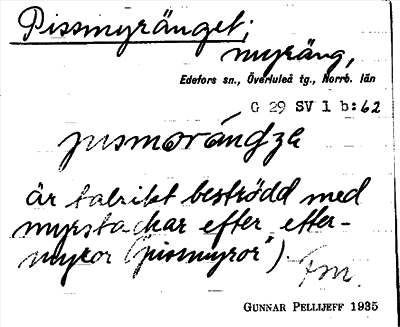 Pissmyränget;
myräng,
Edefors sn., Överluleå tg., Norrb. län
G 29 SV 1 b:62
är talrikt beströdd med
myrstackar efter etter-
myror ("pissmyror")
Fm.
GUNNAR PELLIJEFF 1935